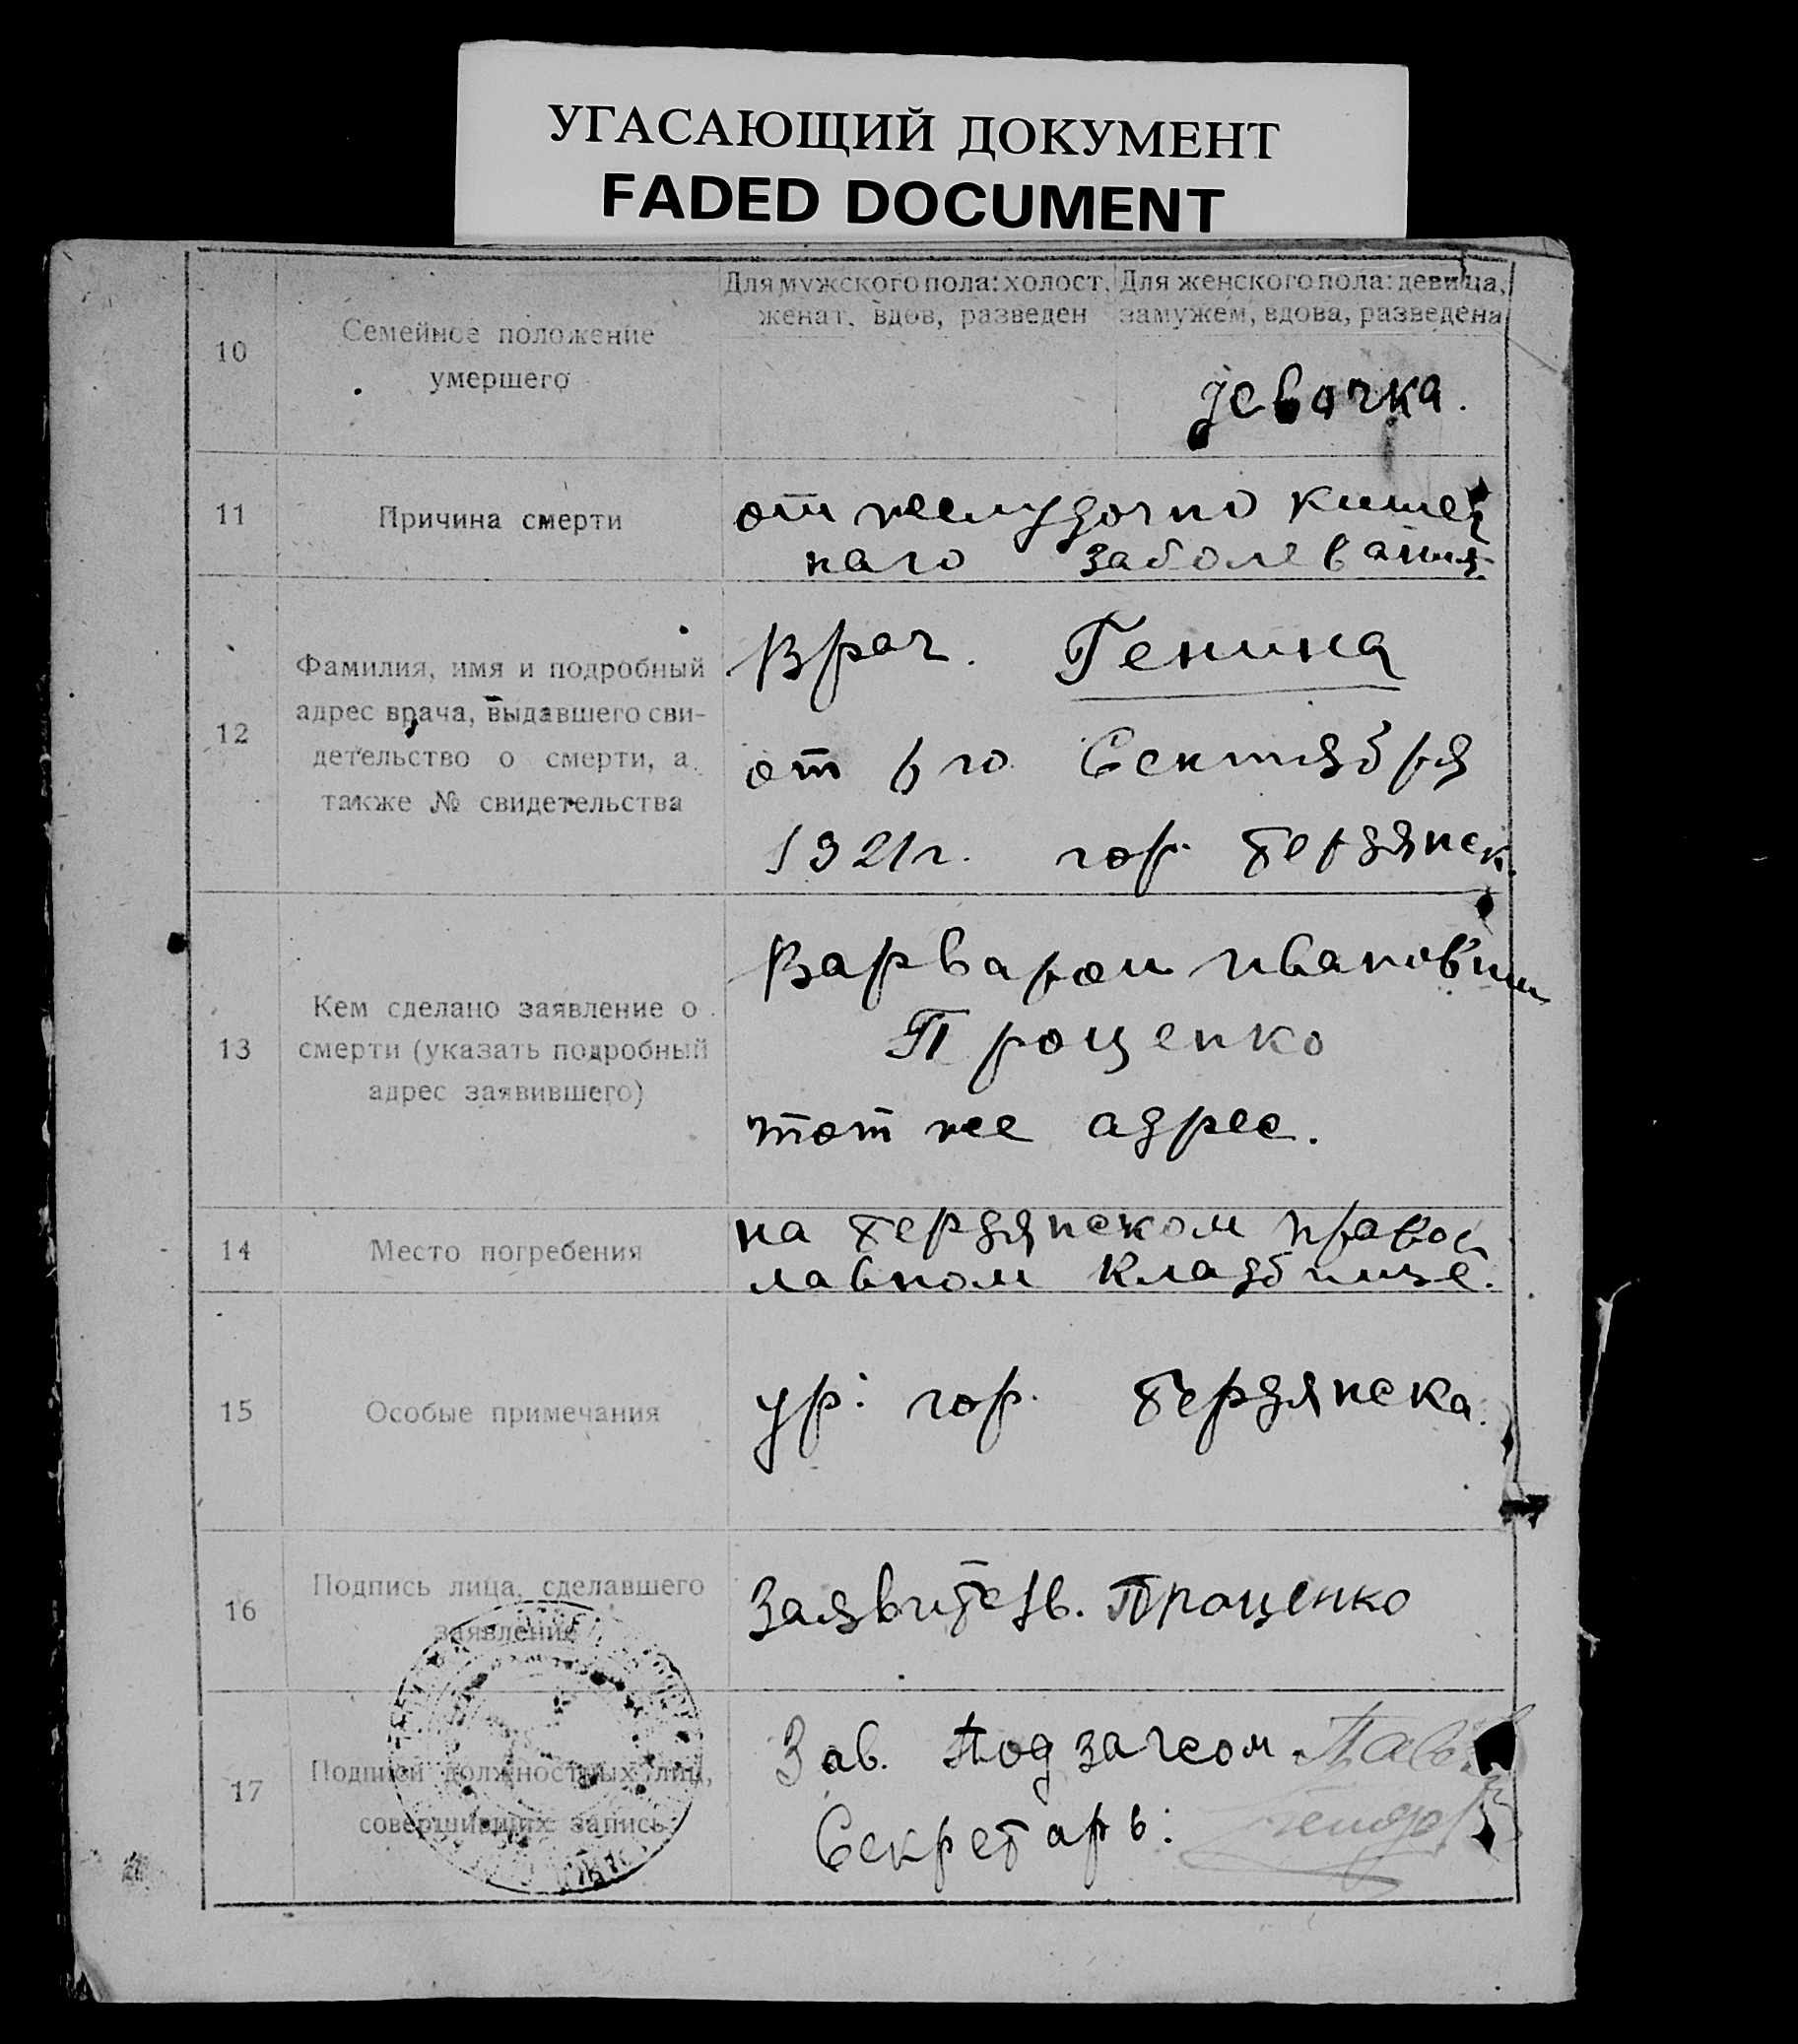 УГАСАЮЩИЙ ДОКУМЕНТ
FADED DOCUMENT
10
Семейное положение
умершего
Для мужского пола: холост,
женат, вдов, разведен
Для женского пола: девица,
замужем, вдова, разведена
девочка.
11
Причина смерти
от желудочно кишеч
наго заболевания.
12
Фамилия, имя и подробный
адрес врача, выдавшего сви-
детельство о смерти, а
также № свидетельства
Врач. Генина
от 6 го Сентября
1921 г. гор. Бердянск.
13
Кем сделано заявление о
смерти (указать подробный
адрес заявившего)
Варварой Ивановны
Проценко
тот же адрес.
14
Место погребения
на Бердянском правос
лавном кладбище.
15
Особые примечания
ур: гор. Бердянска.
16
Подпись лица, сделавшего
заявление
Заявитель. Проценко
17
Подписи должностных лиц,
совершивших запись
Зав. Подзагсом
Секретарь: